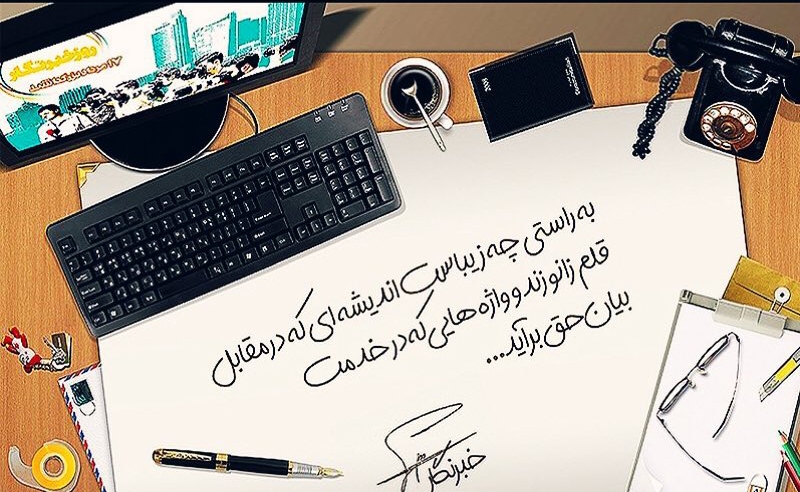 روز خبرنگار
۱۷ مرداد
به راستی چه زیباست اندیشه‌ای که در مقابل
قلم زانو زند و واژه هایی که در خدمت
بیان حق برآید...
خبرنگار